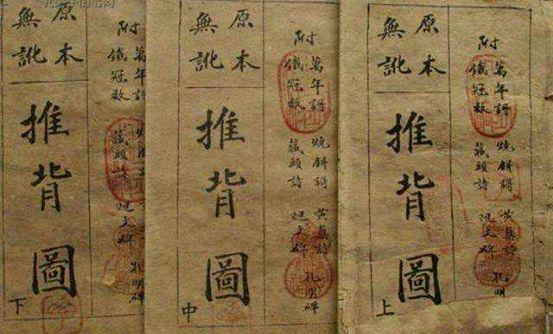 附
萬年譜 燒餅謌 黃蘗詩 孔明碑
鐵冠數 藏頭詩 迴文碑
原本
無訛
推背圖
上
附
萬年譜 燒餅謌 黃蘗詩 孔明碑
鐵冠數 藏頭詩 迴文碑
原本
無訛
推背圖
中
附
鐵冠數 藏頭詩 迴文碑
原本
無訛
推背圖
下